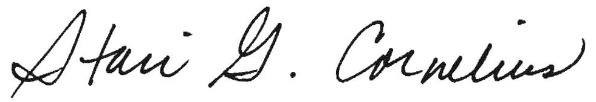 Stari G. Cornelius